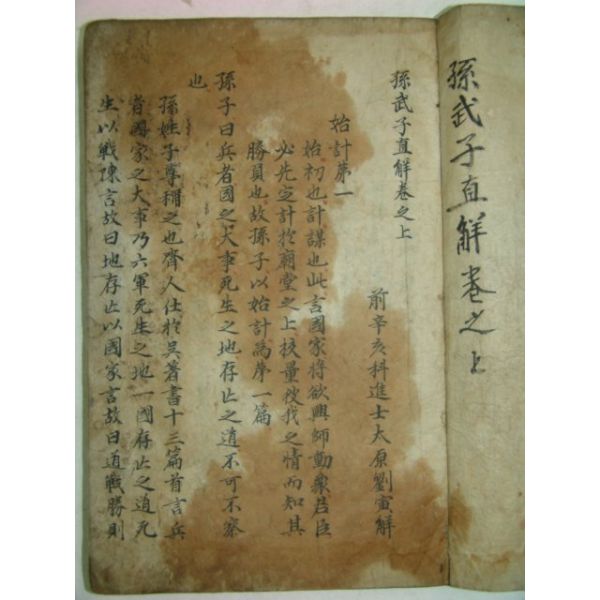 孫武子直解卷之上
孫武子直解卷之上
前辛亥科進士太原劉寅解
始計第一
始初也計謀也此言國家將欲興師動衆君臣
必先定計於廟堂之上校量彼我之情而知其
勝負也故孫子以始計爲第一篇
孫子曰兵者國之大事死生之地存亡之道不可不察
也
孫姓子尊稱之也齊人仕於吳著書十三篇首言兵
者國家之大事乃六軍死生之地一國存亡之道死
生以戰陳言故曰地存亡以國家言故曰道戰勝則